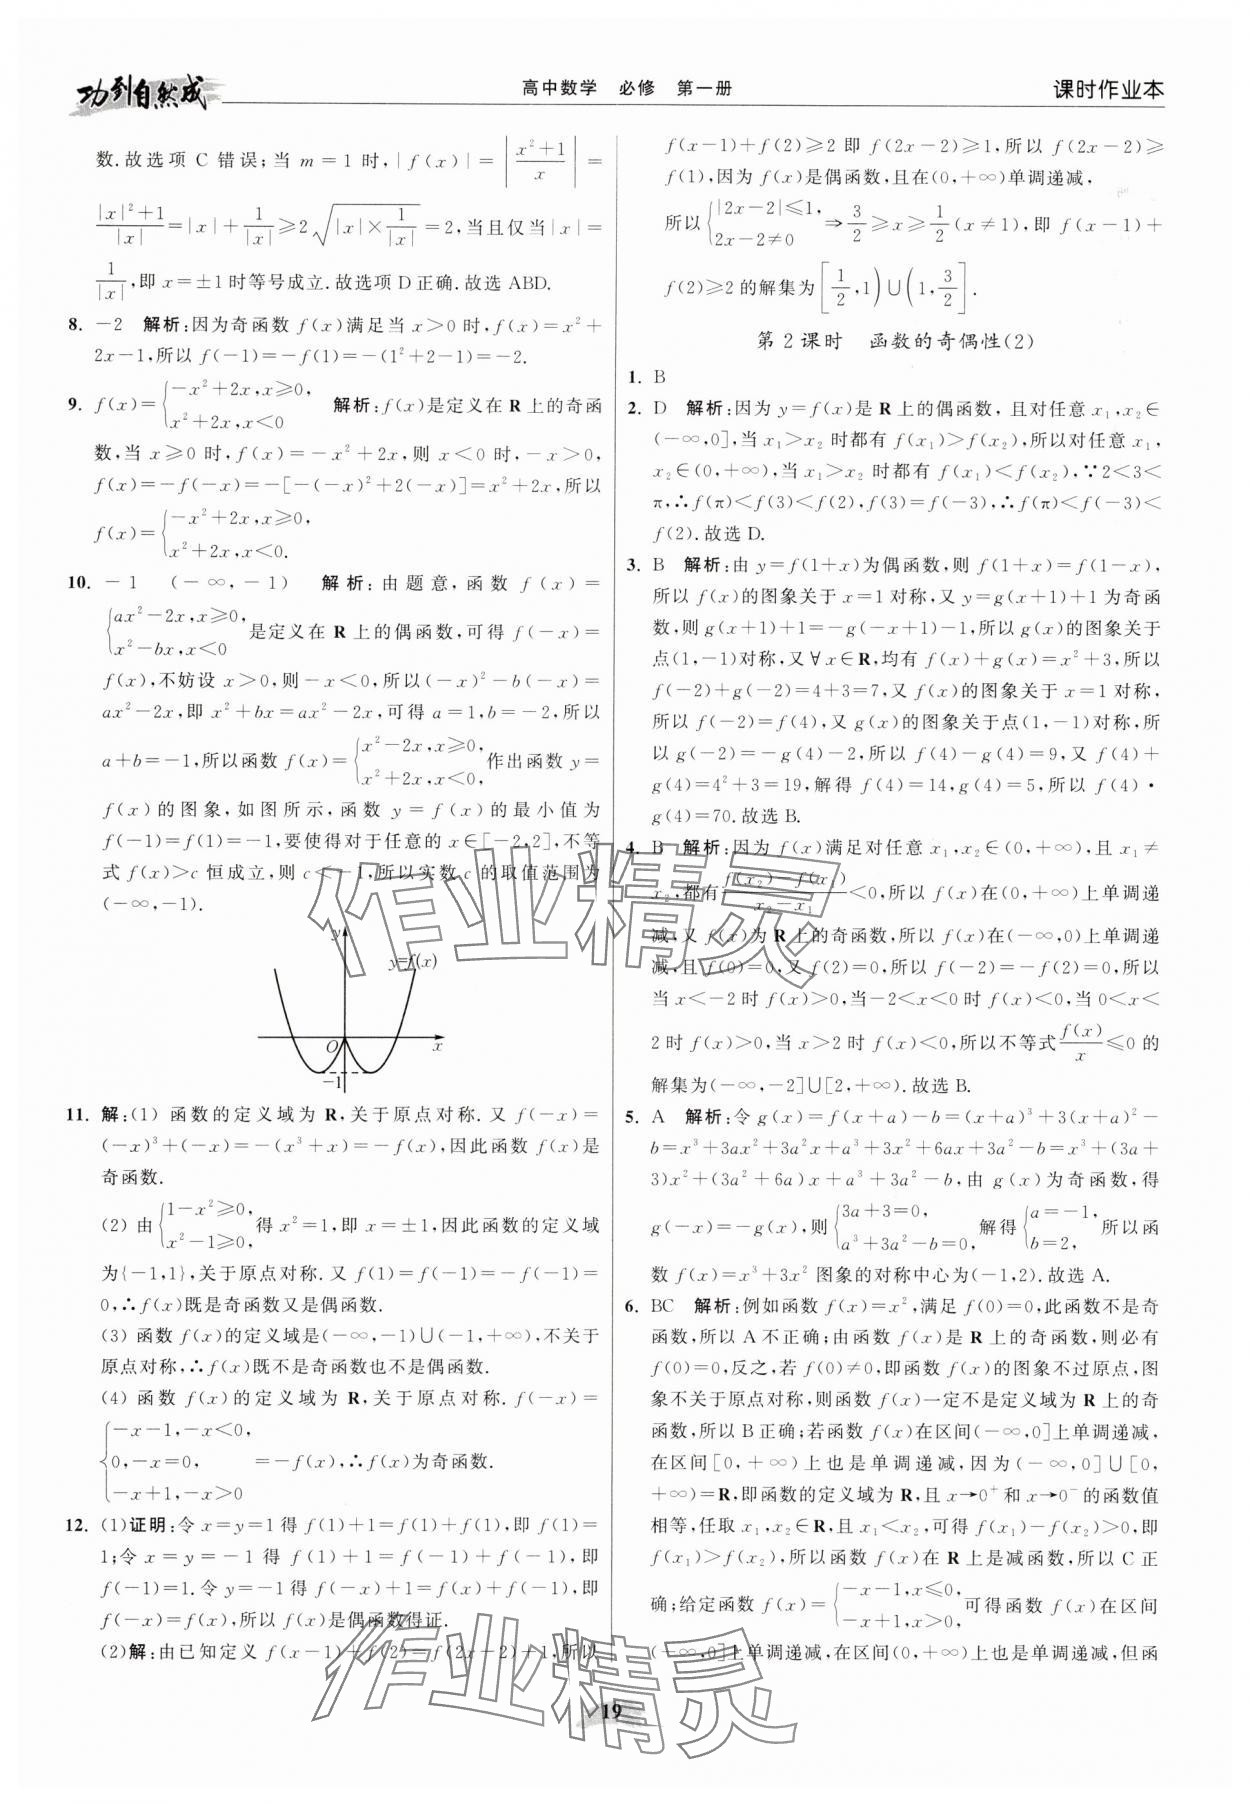 功到自然成
高中数学 必修 第一册
课时作业本
数.故选项 C 错误;当 m=1 时,|f(x)|=|(x²+1)/x|=
(|x|²+1)/|x|=|x|+1/|x|≥2√(|x|×1/|x|)=2,当且仅当|x|=
1/|x|,即 x=±1时等号成立.故选项D正确.故选 ABD.
8. -2 解析:因为奇函数 f(x)满足当 x>0 时,f(x)=x²+
2x-1,所以 f(-1)=-f(1)=-(1²+2-1)=-2.
9. f(x)={-x²+2x,x≥0, x²+2x,x<0 解析:f(x)是定义在 R 上的奇函
数,当 x≥0 时,f(x)=-x²+2x,则 x<0 时,-x>0,
f(x)=-f(-x)=-[-(-x)²+2(-x)]=x²+2x,所以
f(x)={-x²+2x,x≥0, x²+2x,x<0.
10. -1 (-∞,-1) 解析:由题意,函数 f(x)=
{ax²-2x,x≥0, x²-bx,x<0 是定义在 R 上的偶函数,可得 f(-x)=
f(x),不妨设 x>0,则-x<0,所以(-x)²-b(-x)=
ax²-2x,即 x²+bx=ax²-2x,可得 a=1,b=-2,所以
a+b=-1,所以函数 f(x)={x²-2x,x≥0, x²+2x,x<0, 作出函数 y=
f(x)的图象,如图所示,函数 y=f(x)的最小值为
f(-1)=f(1)=-1,要使得对于任意的 x∈[-2,2],不等
式 f(x)>c 恒成立,则 c<-1,所以实数 c 的取值范围为
(-∞,-1).
y
y=f(x)
O
x
-1
11. 解:(1) 函数的定义域为 R,关于原点对称.又 f(-x)=
(-x)³+(-x)=-(x³+x)=-f(x),因此函数 f(x)是
奇函数.
(2) 由{1-x²≥0, x²-1≥0, 得 x²=1,即 x=±1,因此函数的定义域
为{-1,1},关于原点对称.又 f(1)=f(-1)=-f(-1)=
0,∴f(x)既是奇函数又是偶函数.
(3) 函数 f(x)的定义域是(-∞,-1)∪(-1,+∞),不关于
原点对称,∴f(x)既不是奇函数也不是偶函数.
(4) 函数 f(x)的定义域为 R,关于原点对称.f(-x)=
{-x-1,-x<0, 0,-x=0, -x+1,-x>0 =-f(x),∴f(x)为奇函数.
12. (1)证明:令 x=y=1得 f(1)+1=f(1)+f(1),即 f(1)=
1;令 x=y=-1 得 f(1)+1=f(-1)+f(-1),即
f(-1)=1.令 y=-1得 f(-x)+1=f(x)+f(-1),即
f(-x)=f(x),所以 f(x)是偶函数得证.
(2)解:由已知定义 f(x-1)+f(2)=f(2x-2)+1,所以
f(x-1)+f(2)≥2 即 f(2x-2)≥1,所以 f(2x-2)≥
f(1),因为 f(x)是偶函数,且在(0,+∞)单调递减,
所以{|2x-2|≤1, 2x-2≠0 ⇒3/2≥x≥1/2(x≠1),即 f(x-1)+
f(2)≥2的解集为[1/2,1)∪(1,3/2].
第 2 课时 函数的奇偶性(2)
1. B
2. D 解析:因为 y=f(x)是 R 上的偶函数,且对任意 x₁,x₂∈
(-∞,0],当 x₁>x₂ 时都有 f(x₁)>f(x₂),所以对任意 x₁,
x₂∈(0,+∞),当 x₁>x₂ 时都有 f(x₁)<f(x₂),∵2<3<
π,∴f(π)<f(3)<f(2),f(3)=f(-3),∴f(π)<f(-3)<
f(2).故选 D.
3. B 解析:由 y=f(1+x)为偶函数,则 f(1+x)=f(1-x),
所以 f(x)的图象关于 x=1对称,又 y=g(x+1)+1为奇函
数,则 g(x+1)+1=-g(-x+1)-1,所以 g(x)的图象关于
点(1,-1)对称,又∀x∈R,均有 f(x)+g(x)=x²+3,所以
f(-2)+g(-2)=4+3=7,又 f(x)的图象关于 x=1对称,
所以 f(-2)=f(4),又 g(x)的图象关于点(1,-1)对称,所
以 g(-2)=-g(4)-2,所以 f(4)-g(4)=9,又 f(4)+
g(4)=4²+3=19,解得 f(4)=14,g(4)=5,所以 f(4)·
g(4)=70.故选 B.
4. B 解析:因为 f(x)满足对任意 x₁,x₂∈(0,+∞),且 x₁≠
x₂,都有(f(x₂)-f(x₁))/(x₂-x₁)<0,所以 f(x)在(0,+∞)上单调递
减,又 f(x)为 R 上的奇函数,所以 f(x)在(-∞,0)上单调递
减,且 f(0)=0,又 f(2)=0,所以 f(-2)=-f(2)=0,所以
当 x<-2时 f(x)>0,当-2<x<0时 f(x)<0,当 0<x<
2 时 f(x)>0,当 x>2 时 f(x)<0,所以不等式 f(x)/x≤0 的
解集为(-∞,-2]∪[2,+∞).故选 B.
5. A 解析:令 g(x)=f(x+a)-b=(x+a)³+3(x+a)²-
b=x³+3ax²+3a²x+a³+3x²+6ax+3a²-b=x³+(3a+
3)x²+(3a²+6a)x+a³+3a²-b,由 g(x)为奇函数,得
g(-x)=-g(x),则{3a+3=0, a³+3a²-b=0, 解得{a=-1, b=2, 所以函
数 f(x)=x³+3x² 图象的对称中心为(-1,2).故选 A.
6. BC 解析:例如函数 f(x)=x²,满足 f(0)=0,此函数不是奇
函数,所以 A 不正确;由函数 f(x)是 R 上的奇函数,则必有
f(0)=0,反之,若 f(0)≠0,即函数 f(x)的图象不过原点,图
象不关于原点对称,则函数 f(x)一定不是定义域为 R 上的奇
函数,所以 B正确;若函数 f(x)在区间(-∞,0]上单调递减,
在区间[0,+∞)上也是单调递减,因为(-∞,0]∪[0,
+∞)=R,即函数的定义域为 R,且 x→0⁺ 和 x→0⁻ 的函数值
相等,任取 x₁,x₂∈R,且 x₁<x₂,可得 f(x₁)-f(x₂)>0,即
f(x₁)>f(x₂),所以函数 f(x)在 R 上是减函数,所以 C 正
确;给定函数 f(x)={-x-1,x≤0, -x+1,x>0, 可得函数 f(x)在区间
(-∞,0]上单调递减,在区间(0,+∞)上也是单调递减,但函
19
作业精灵
作业精灵